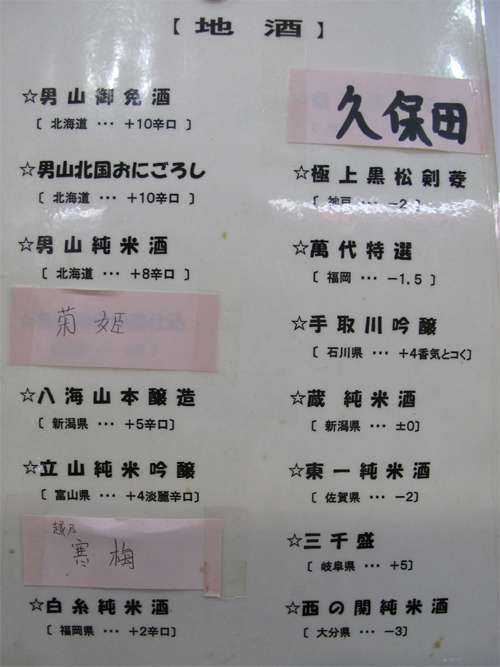 【地 酒】
☆男山御免酒
〔 北海道 ･･･ +10辛口 〕
☆男山北国おにごろし
〔 北海道 ･･･ +10辛口 〕
☆男山純米酒
〔 北海道 ･･･ +8辛口 〕
菊姫
☆八海山本醸造
〔 新潟県 ･･･ +5辛口〕
☆立山純米吟醸
〔 富山県 ･･･ +4淡麗辛口〕
越乃
寒梅
☆白糸純米酒
〔 福岡県 ･･･ +2辛口〕
久保田
☆極上黒松剣菱
〔 神戸 ･･･ −2 〕
☆萬代特選
〔 福岡 ･･･ −1.5 〕
☆手取川吟醸
〔 石川県 ･･･ +4香気とコく〕
☆蔵 純米酒
〔 新潟県 ･･･ ±0〕
☆東一純米酒
〔 佐賀県 ･･･ −2〕
☆三千盛
〔 岐阜県 ･･･ +5〕
☆西の関純米酒
〔 大分県 ･･･ −3〕